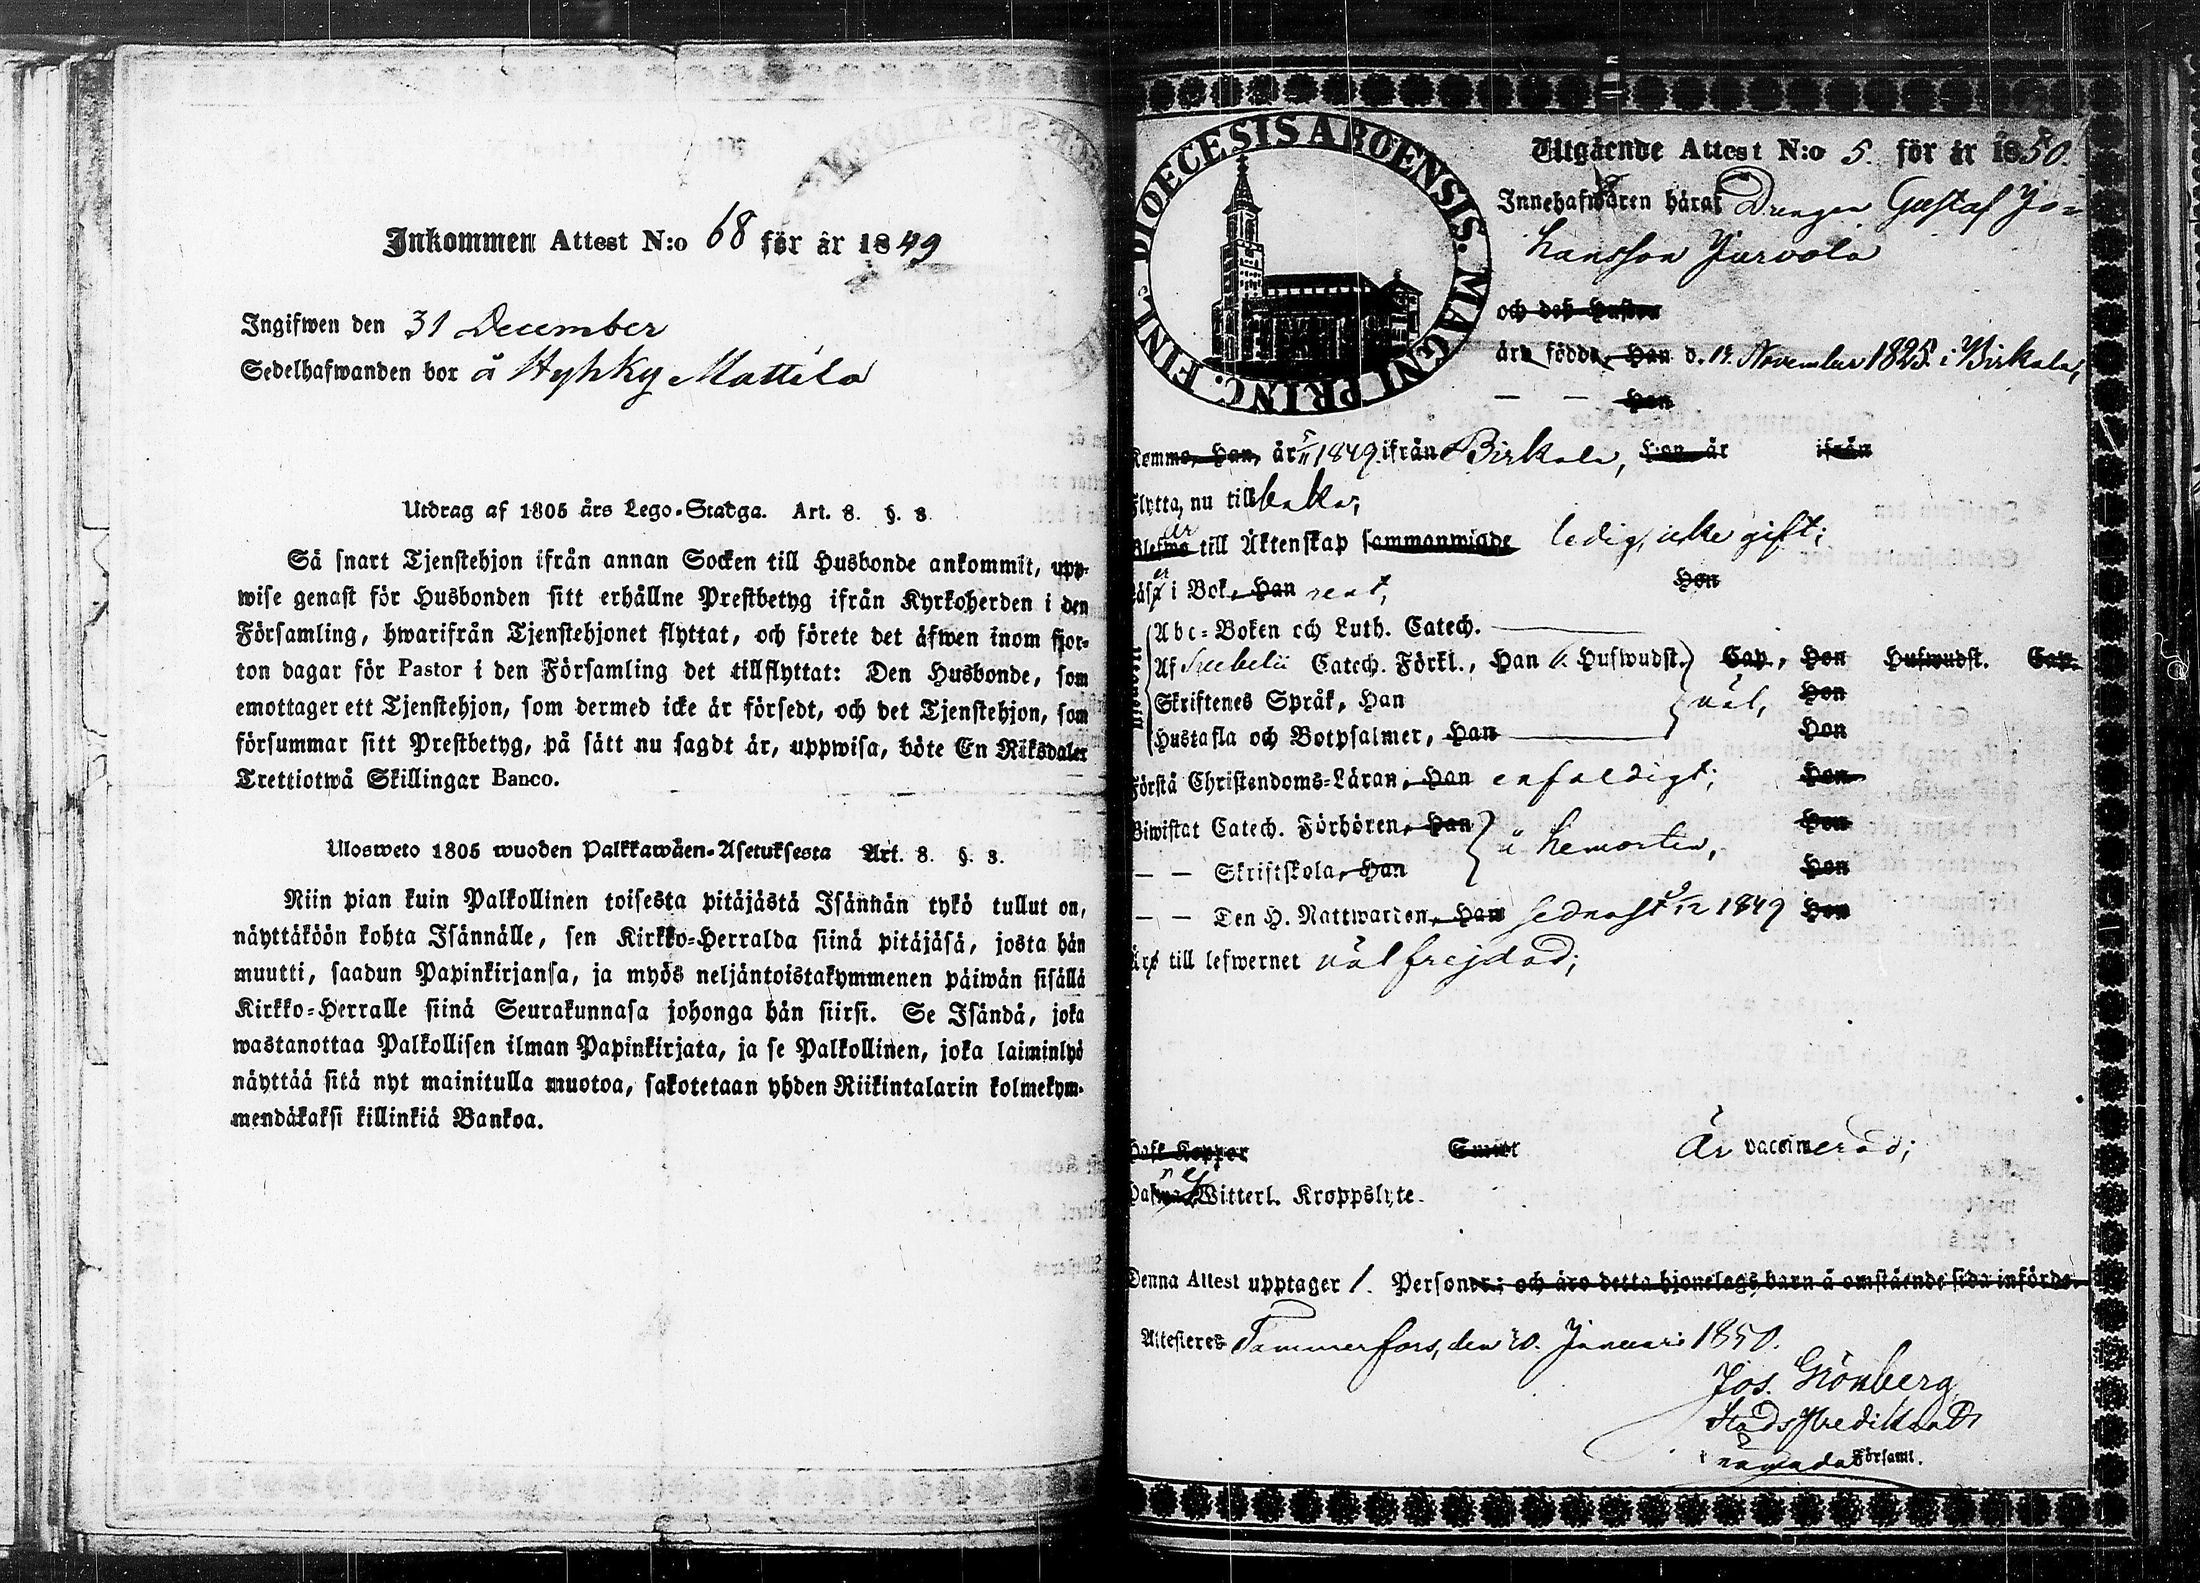 Inkommen Attest N:o 68 för år 1849
Ingifwen den 31 December
Sedelhafwanden bor å Hyhky Mattila
Utdrag af 1805 års Lego-Stadga. Art. 8. §. 3.
Så snart Tjenstehjon ifrån annan Socken till Husbonde ankommit, upp-
wise genast för Husbonden sitt erhållne Prestbetyg ifrån Kyrkoherden i den
Församling, hwarifrån Tjenstehjonet flyttat, och förete det äfwen inom fjor-
ton dagar för Pastor i den Församling det tillflyttat: Den Husbonde, som
emottager ett Tjenstehjon, som dermed icke är försedt, och det Tjenstehjon, som
försummar sitt Prestbetyg, på sätt nu sagdt är, uppwisa, böte En Riksdaler
Trettiotwå Skillingar Banco.
Ulosweto 1805 wuoden Palkkawäen-Asetuksesta Art. 8. §. 3.
Niin pian kuin Palkollinen toisesta pitäjästä Isännän tykö tullut on,
näyttäköön kohta Isännälle, sen Kirkko-Herralda siinä pitäjäsä, josta hän
muutti, saadun Papinkirjansa, ja myös neljäntoistakymmenen päiwän sisällä
Kirkko-Herralle siinä Seurakunnasa johonga hän siirsi. Se Isändä, joka
wastanottaa Palkollisen ilman Papinkirjata, ja se Palkollinen, joka laiminlyö
näyttää sitä nyt mainitulla muotoa, sakotetaan yhden Riikintalarin kolmekym-
mendäkaksi killinkiä Bankoa.
DIOECESIS ABOENSIS. MAGNI PRINC. FINL.
Utgående Attest N:o 5. för år 1850.
Innehafwaren häraf Drengen Gustaf Jo-
hansson Jarvola
och dess hustru
äro födde, Han d. 19. November 1825. i Birkala,
— — Hon
Komma, Han, år 5/11 1849. ifrån Birkala, Hon år ifrån
Flytta, nu tillbaka;
är
Blefwo till Äktenskap sammanwigde ledig, icke gift;
Läsa i Bok, Han rent, Hon
Abc-Boken och Luth. Catech.
Af Svebelii Catech. Förkl., Han 6. Hufwudst. Cap., Hon Hufwudst. Cap.
Skriftenes Språk, Han väl, Hon
Hustafla och Botpsalmer, Han Hon
Förstå Christendoms-Läran, Han enfaldigt; Hon
Biwistat Catech. Förhören, Han å hemorten, Hon
— — Skriftskola, Han Hon
— — Den H. Nattwarden, Han sednast 9/12 1849 Hon
Äro till lefwernet välfrejdad;
Haft Koppor Smitt Är vaccinerad;
Witterl. Kroppslyte.
Denna Attest upptager 1. Personer; och äro detta hjonelags barn å omstående sida införde.
Attesteres Tammerfors, den 20. Januari 1850.
Jos. Grönberg
Stadspredikant
i nämnda Församl.